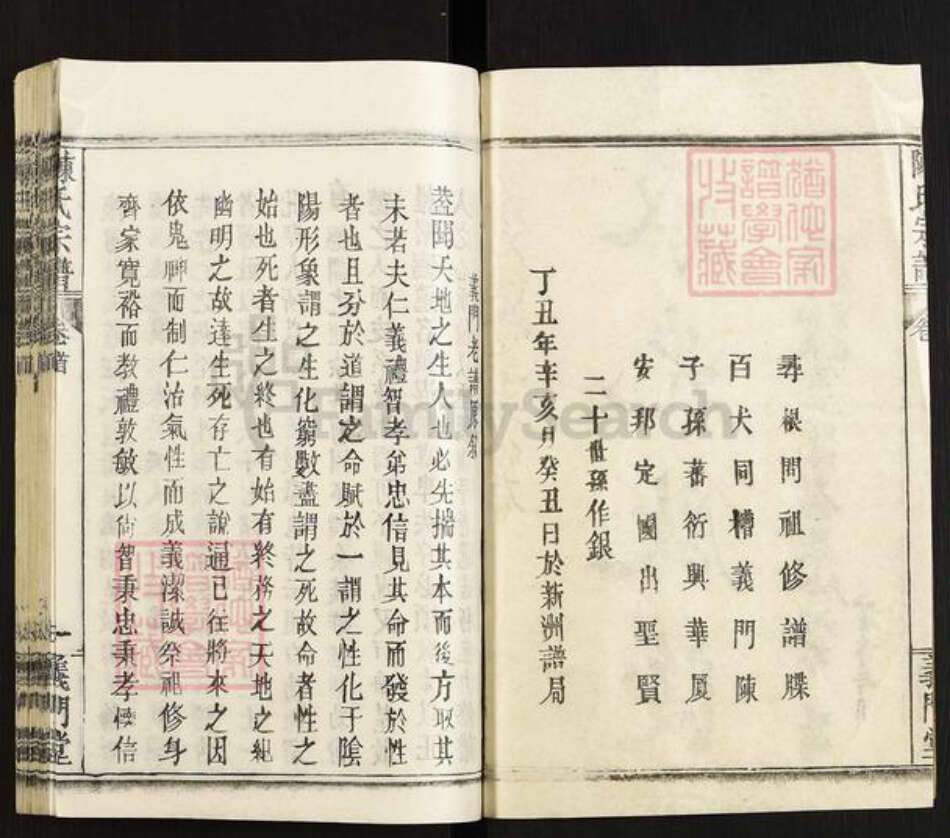 陳氏宗譜
卷
義門堂
尋根問祖修譜牒
百犬同槽義門陳
子孫蕃衍興華厦
安邦定國出聖賢
二十世孫作銀
丁丑年辛亥月癸丑日於新洲譜局
義門老譜原
葢聞天地之生人也必先揣其本而後方取其
末若夫仁義禮智孝弟忠信見其命而發於性
者也且分於道謂之命賦於一謂之性化于陰
陽形象謂之生化窮數盡謂之死故命者性之
始也死者生之終也有始有終務之天地之紀
幽明之故達生死存亡之說通已往將來之因
依鬼神而制仁治氣性而成義潔誠祭祀修身
齊家寬裕而教禮敦敏以尚智秉忠秉孝信
陳氏宗譜
卷首
一
義門堂
FamilySearch